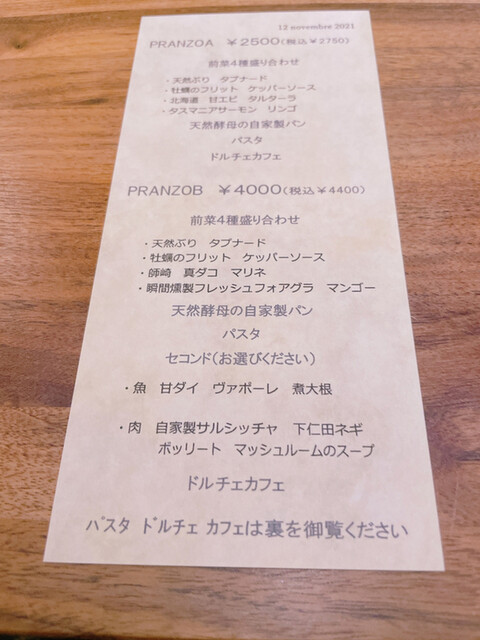 12 novembre 2021
PRANZOA ￥2500(税込￥2750)
前菜4種盛り合わせ
・天然ぶり タプナード
・牡蠣のフリット ケッパーソース
・北海道 甘エビ タルターラ
・タスマニアサーモン リンゴ
天然酵母の自家製パン
パスタ
ドルチェカフェ
PRANZOB ￥4000(税込￥4400)
前菜4種盛り合わせ
・天然ぶり タプナード
・牡蠣のフリット ケッパーソース
・師崎 真ダコ マリネ
・瞬間燻製フレッシュフォアグラ マンゴー
天然酵母の自家製パン
パスタ
セコンド(お選びください)
・魚 甘ダイ ヴァポーレ 煮大根
・肉 自家製サルシッチャ 下仁田ネギ
ボッリート マッシュルームのスープ
ドルチェカフェ
パスタ ドルチェ カフェは裏を御覧ください